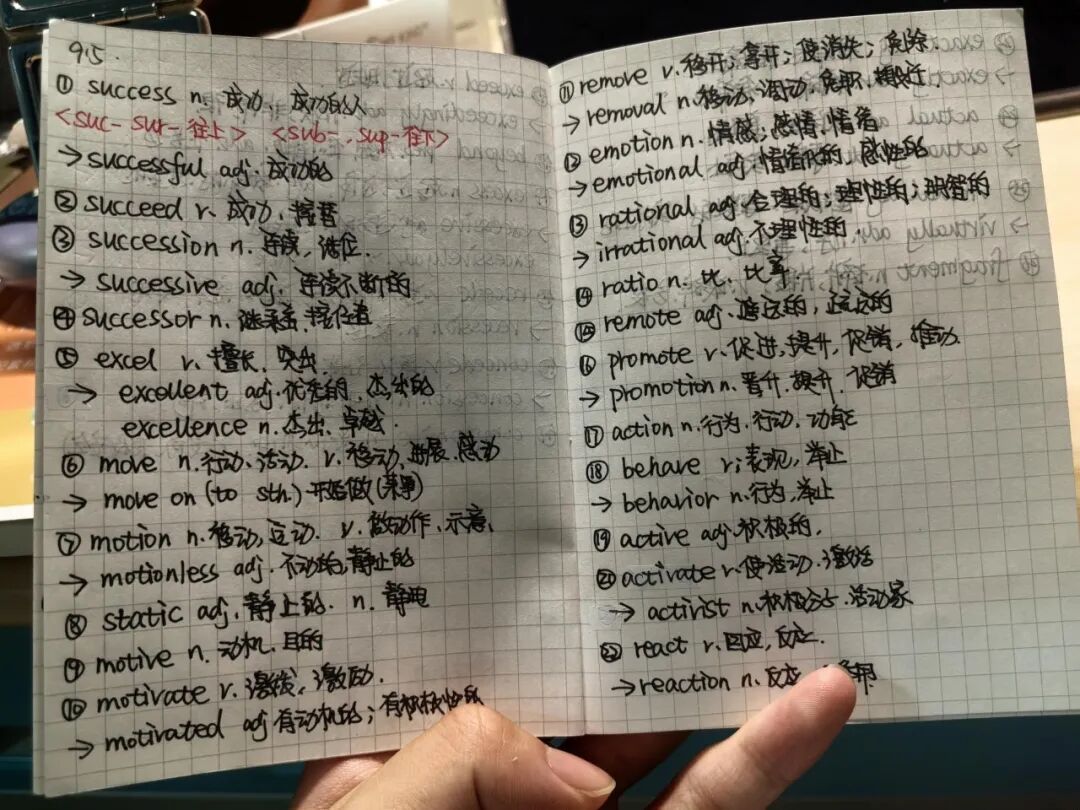 9.5.
① success n. 成功. 成功的人
<suc- sur- 往上> <sub-, sup- 往下>
→ successful adj. 成功的
② succeed v. 成功. 接替
③ succession n. 连续, 继位.
→ successive adj. 连续不断的
④ successor n. 继承者, 接任者
⑤ excel v. 擅长. 突出.
→ excellent adj. 优秀的. 杰出的
excellence n. 杰出. 卓越.
⑥ move n. 行动. 活动. v. 移动. 进展. 感动
→ move on (to sth.) 开始做(某事)
⑦ motion n. 移动, 运动. v. 做动作. 示意.
→ motionless adj. 不动的, 静止的
⑧ static adj. 静止的. n. 静电
⑨ motive n. 动机. 目的
⑩ motivate v. 激发, 激励.
→ motivated adj 有动机的; 有积极性的
⑪ remove v. 移开; 拿开; 使消失; 免除.
→ removal n. 移动. 调动. 免职.
⑫ emotion n. 情感; 感情. 情绪
→ emotional adj. 情绪化的. 感性的
⑬ rational adj. 合理的; 理性的; 明智的
→ irrational adj. 不理性的.
⑭ ratio n. 比. 比率.
⑮ remote adj. 遥远的,
⑯ promote v. 促进, 提升, 促销, 推动.
→ promotion n. 晋升. 提升. 促销
⑰ action n. 行为. 行动. 功能
⑱ behave v; 表现, 举止
→ behavior n. 行为, 举止
⑲ active adj. 积极的.
⑳ activate v. 使活动. 激活
→ activist n. 积极分子. 活动家
㉒ react v. 回应, 反应.
→ reaction n. 反应